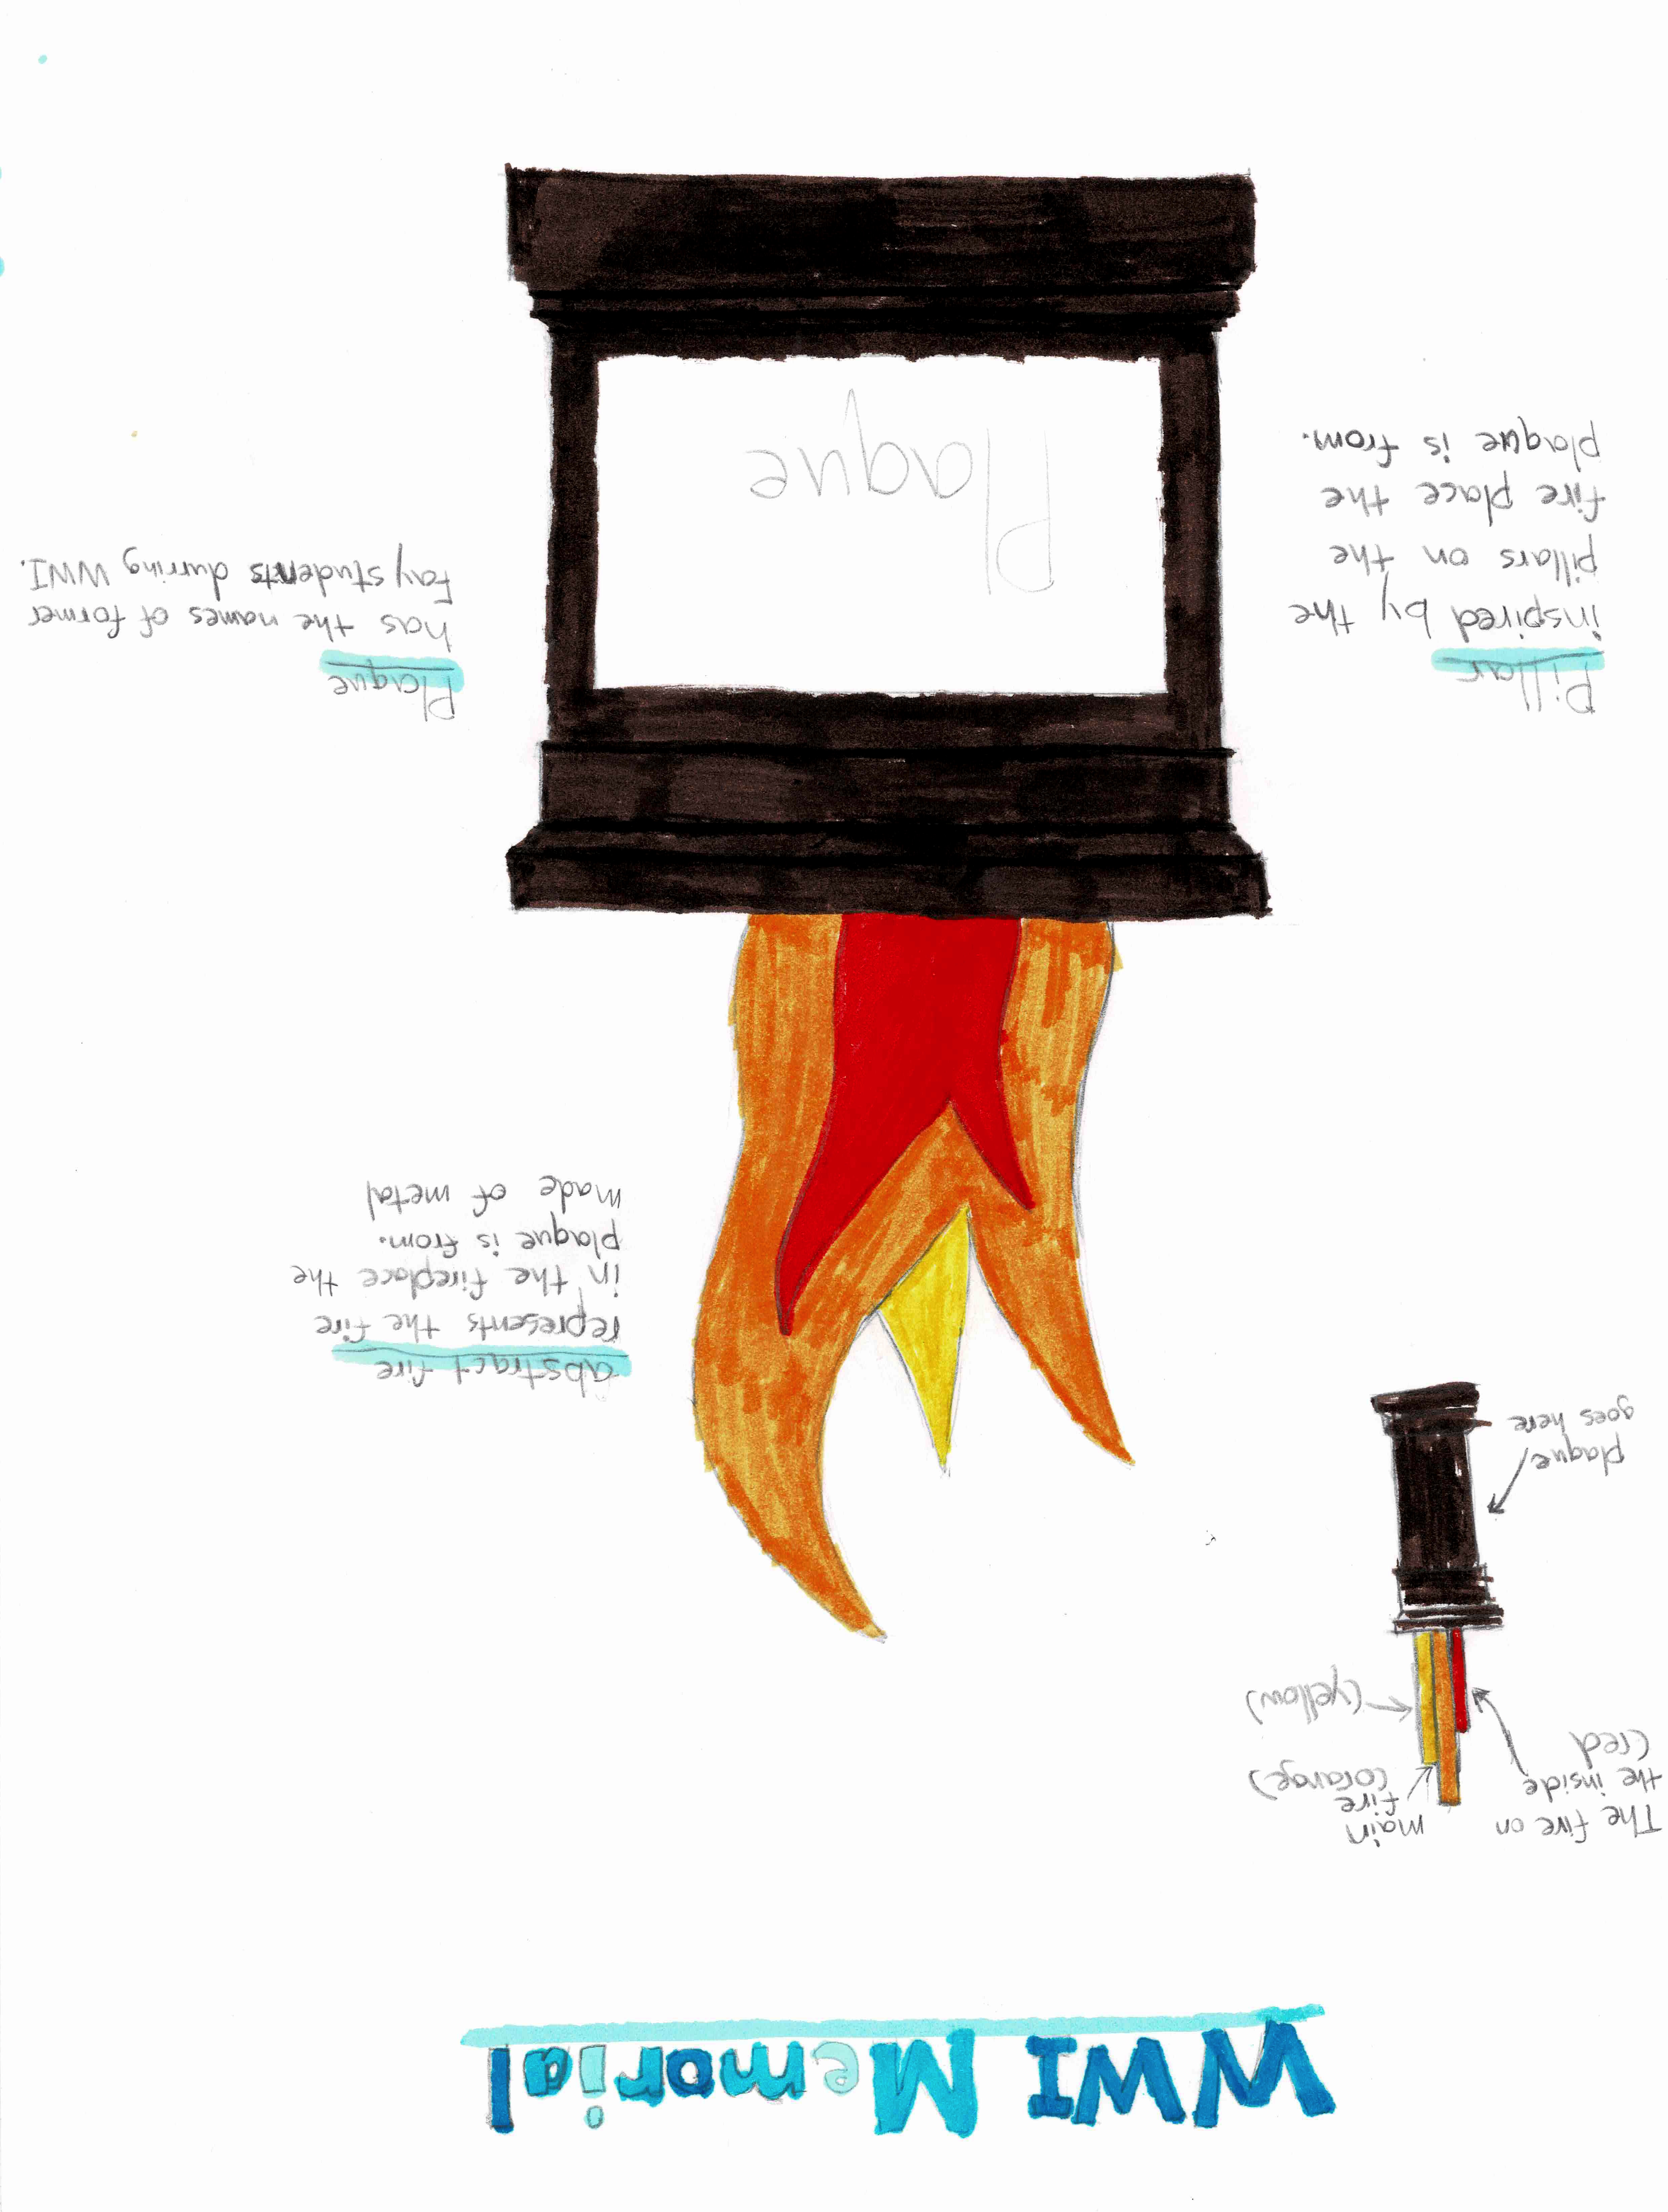 WWI Memorial
The fire on
the inside
(red
main
fire
(orange)
(yellow)
plaque
goes here
abstract fire
represents the fire
in the fireplace the
plaque is from.
made of metal
Pillar
inspired by the
pillars on the
fire place the
plaque is from.
Plaque
Plaque
has the names of former
Fay students durring WWI.